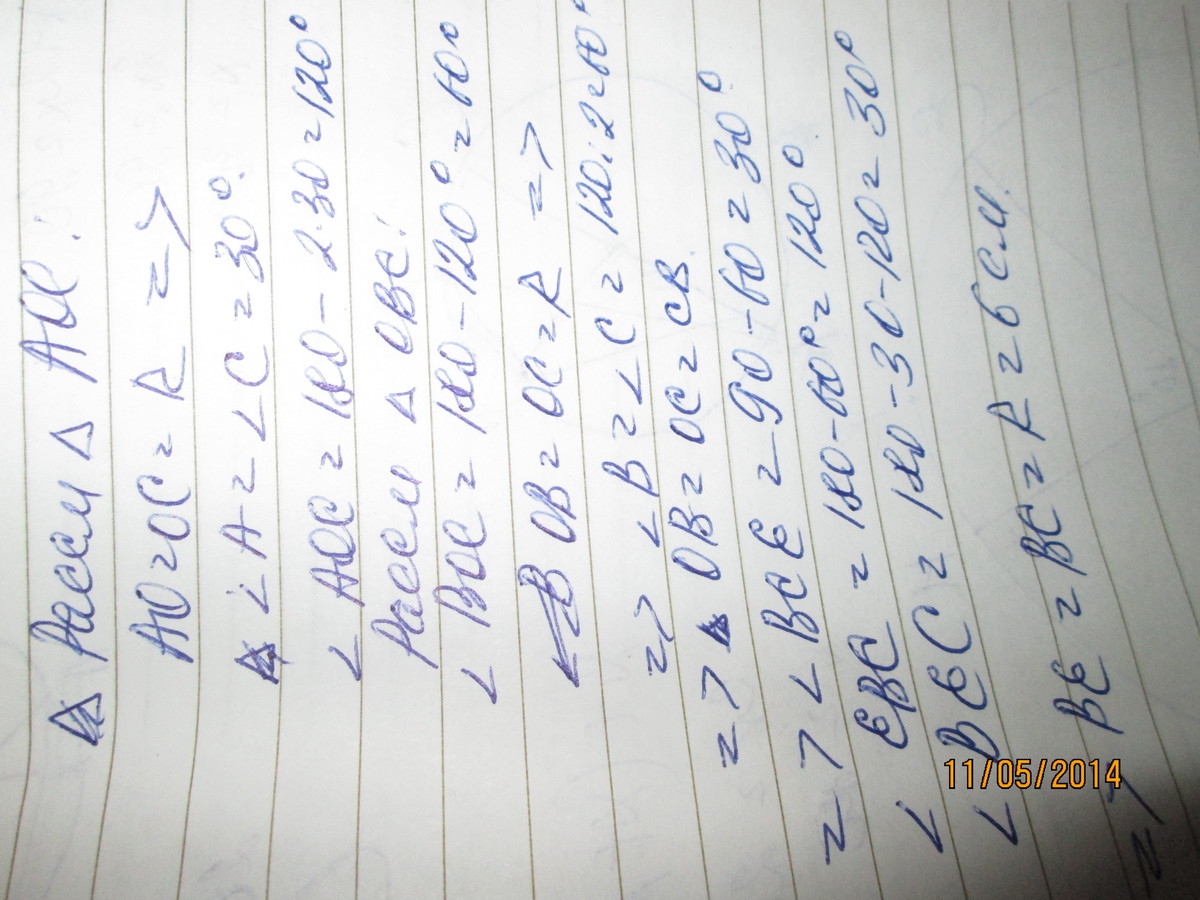 Рассм Δ AOC:
AO=OC=R =>
∠A=∠C=30°.
∠AOC=180-2·30=120°
Рассм Δ OBC:
∠BOC=180-120°=60°
OB=OC=R =>
=> ∠B=∠C=120:2=60°
=> OB=OC=CB.
=> ∠BCE=90-60=30°
∠EBC=180-60°=120°.
∠BEC=180-30-120=30°
=> BE=BC=R=6см.
11/05/2014